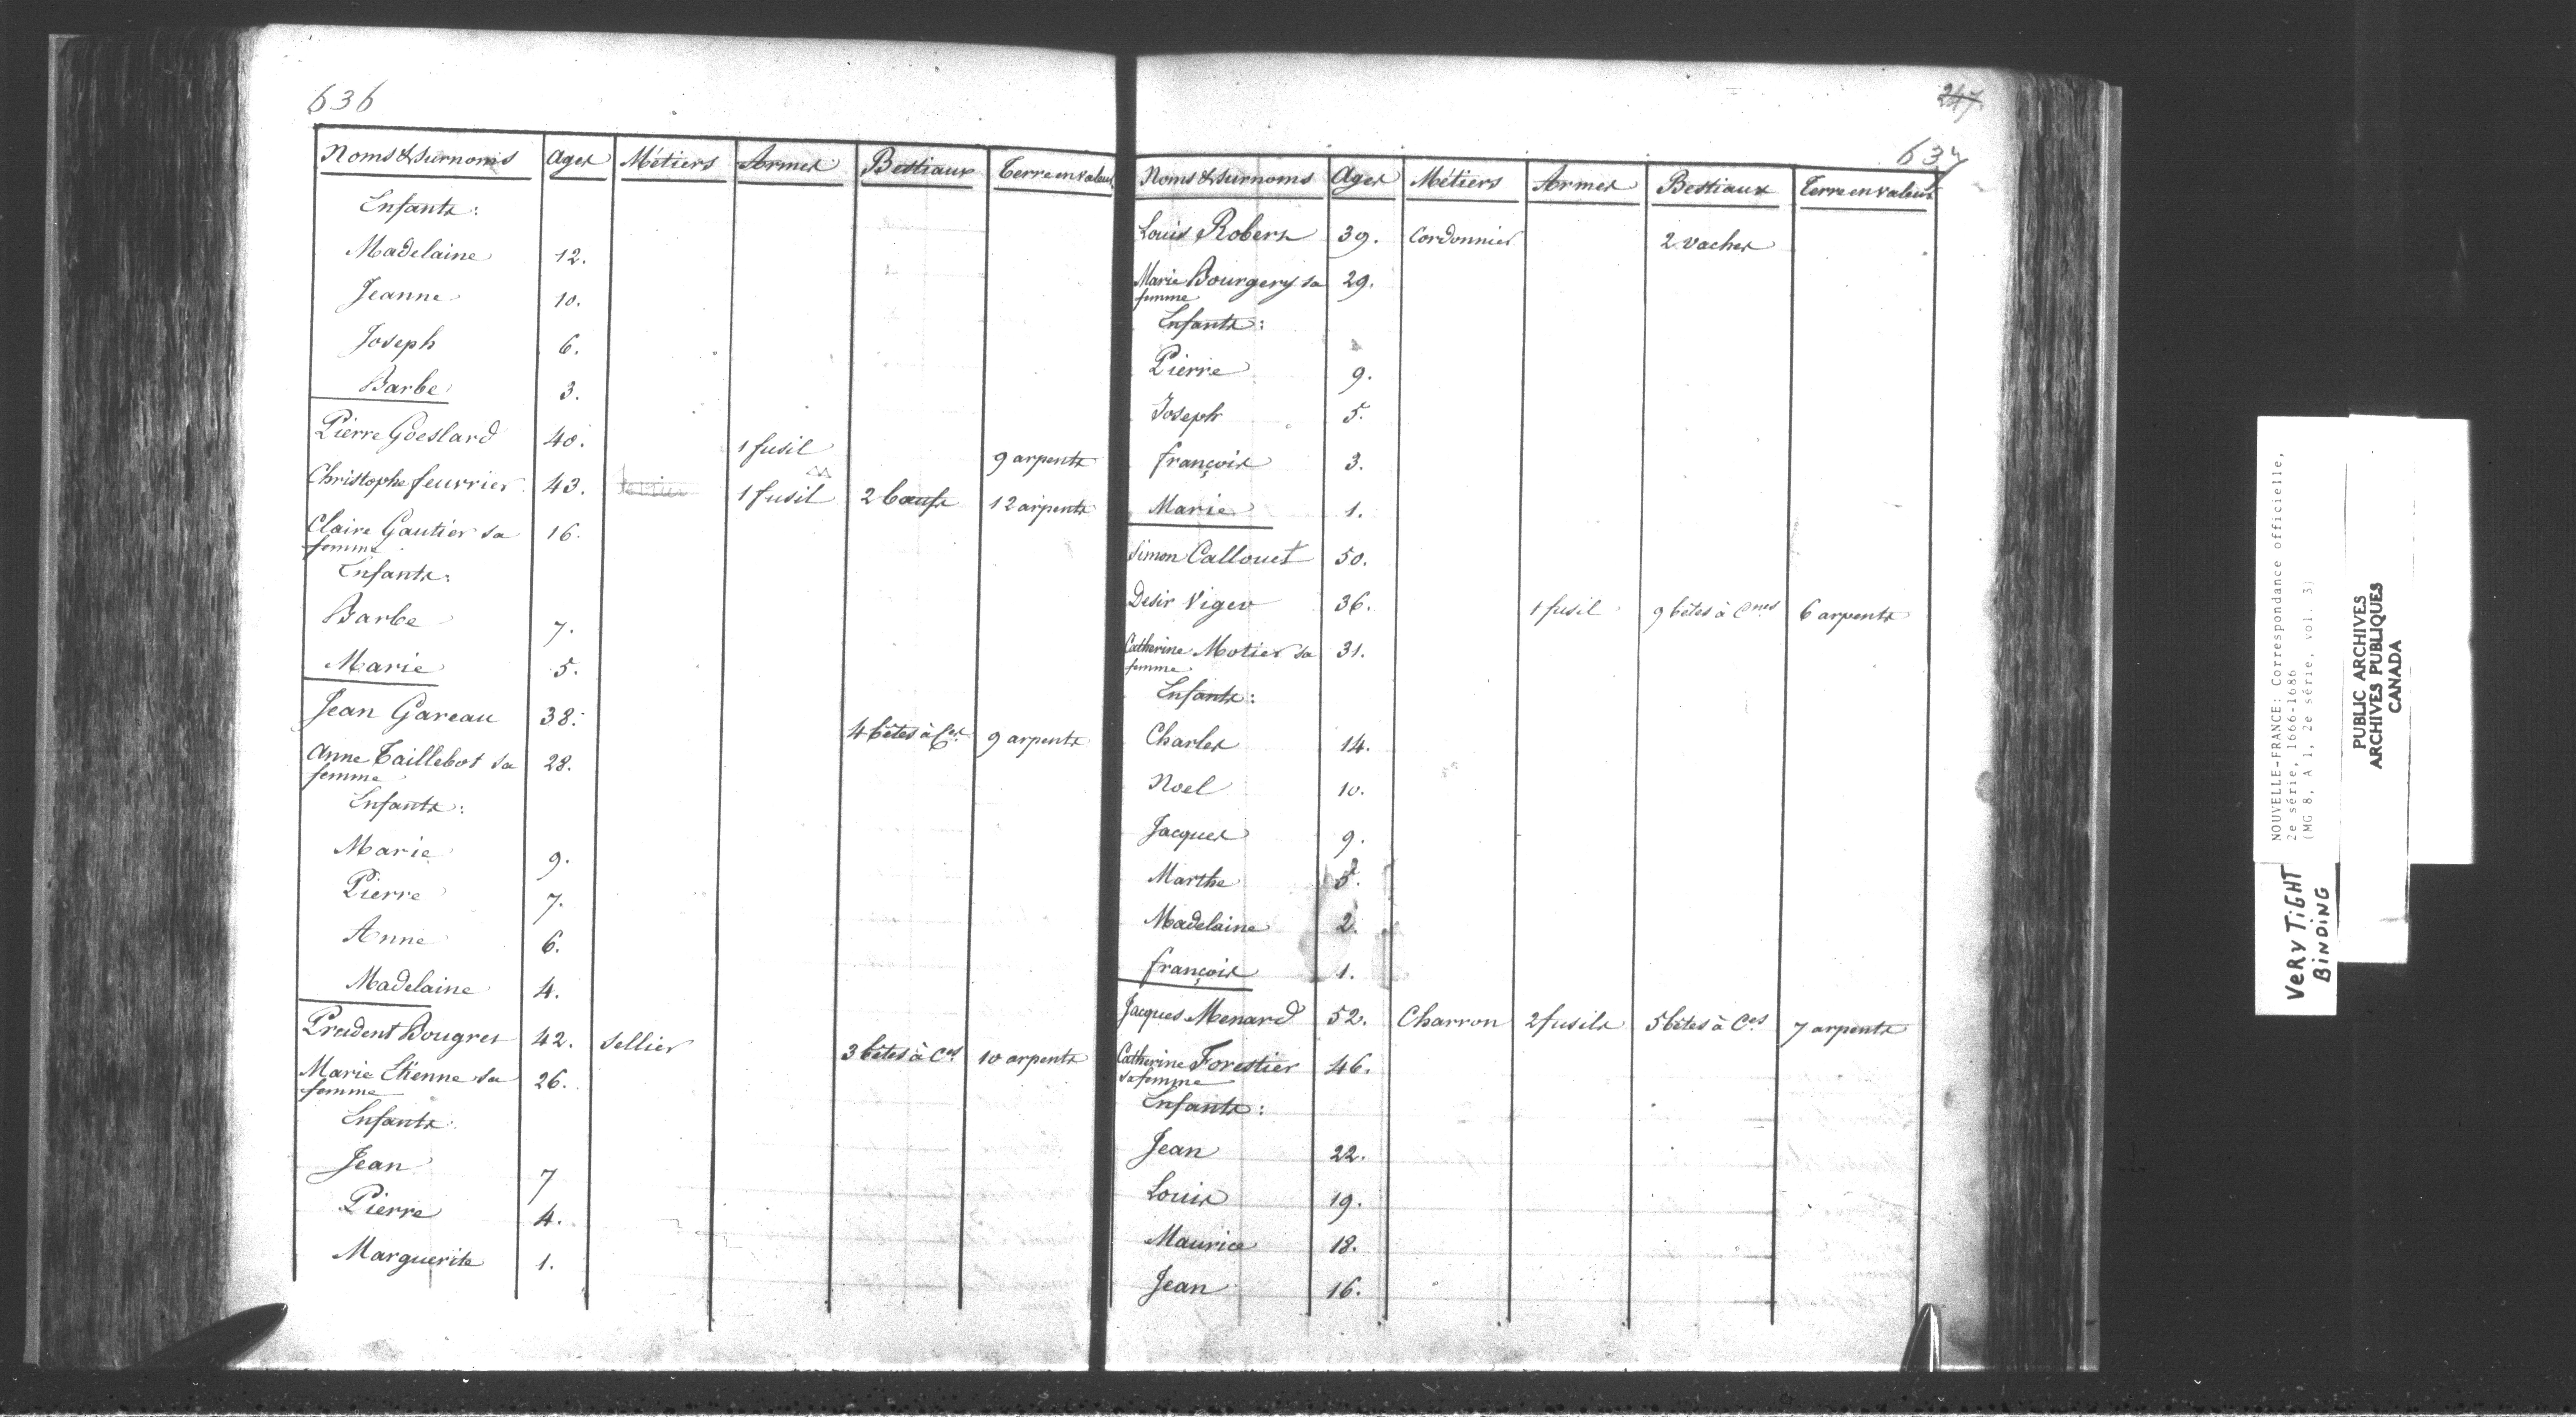 636
Noms & Surnoms Ages Métiers Armes Bestiaux Terre en valeur
Enfants:
Madelaine 12.
Jeanne 10.
Joseph 6.
Barbe 3.
Pierre Goeslard 40. 1 fusil 9 arpents
Christophe feuvrier 43. 1 fusil 2 bœufs 12 arpents
Claire Gautier sa 16.
femme
Enfants:
Barbe 7.
Marie 5.
Jean Gareau 38. 4 bêtes à Ces 9 arpents
Anne Taillebot sa 28.
femme
Enfants:
Marie 9.
Pierre 7.
Anne 6.
Madelaine 4.
Prudent Bougret 42. Sellier 3 bêtes à Ces 10 arpents
Marie Etienne sa 26.
femme
Enfants:
Jean 7
Pierre 4.
Marguerite 1.
247
637
Noms & Surnoms Ages Métiers Armes Bestiaux Terre en valeur
Louis Robert 39. Cordonnier 2 vaches
Marie Bourgery sa 29.
femme
Enfants:
Pierre 9.
Joseph 5.
françois 3.
Marie 1.
Simon Callouet 50.
Desir Viger 36. 1 fusil 9 bêtes à Cnes 6 arpents
Catherine Motier sa 31.
femme
Enfants:
Charles 14.
Noel 10.
Jacques 9.
Marthe 5.
Madelaine 2.
françois 1.
Jacques Menard 52. Charron 2 fusils 5 bêtes à Ces 7 arpents
Catherine Forestier 46.
sa femme
Enfants:
Jean 22.
Louis 19.
Maurice 18.
Jean 16.
NOUVELLE-FRANCE: Correspondance officielle,
2e série, 1666-1686
(MG 8, A 1, 2e série, vol. 3)
PUBLIC ARCHIVES
ARCHIVES PUBLIQUES
CANADA
VERY TIGHT
BINDING